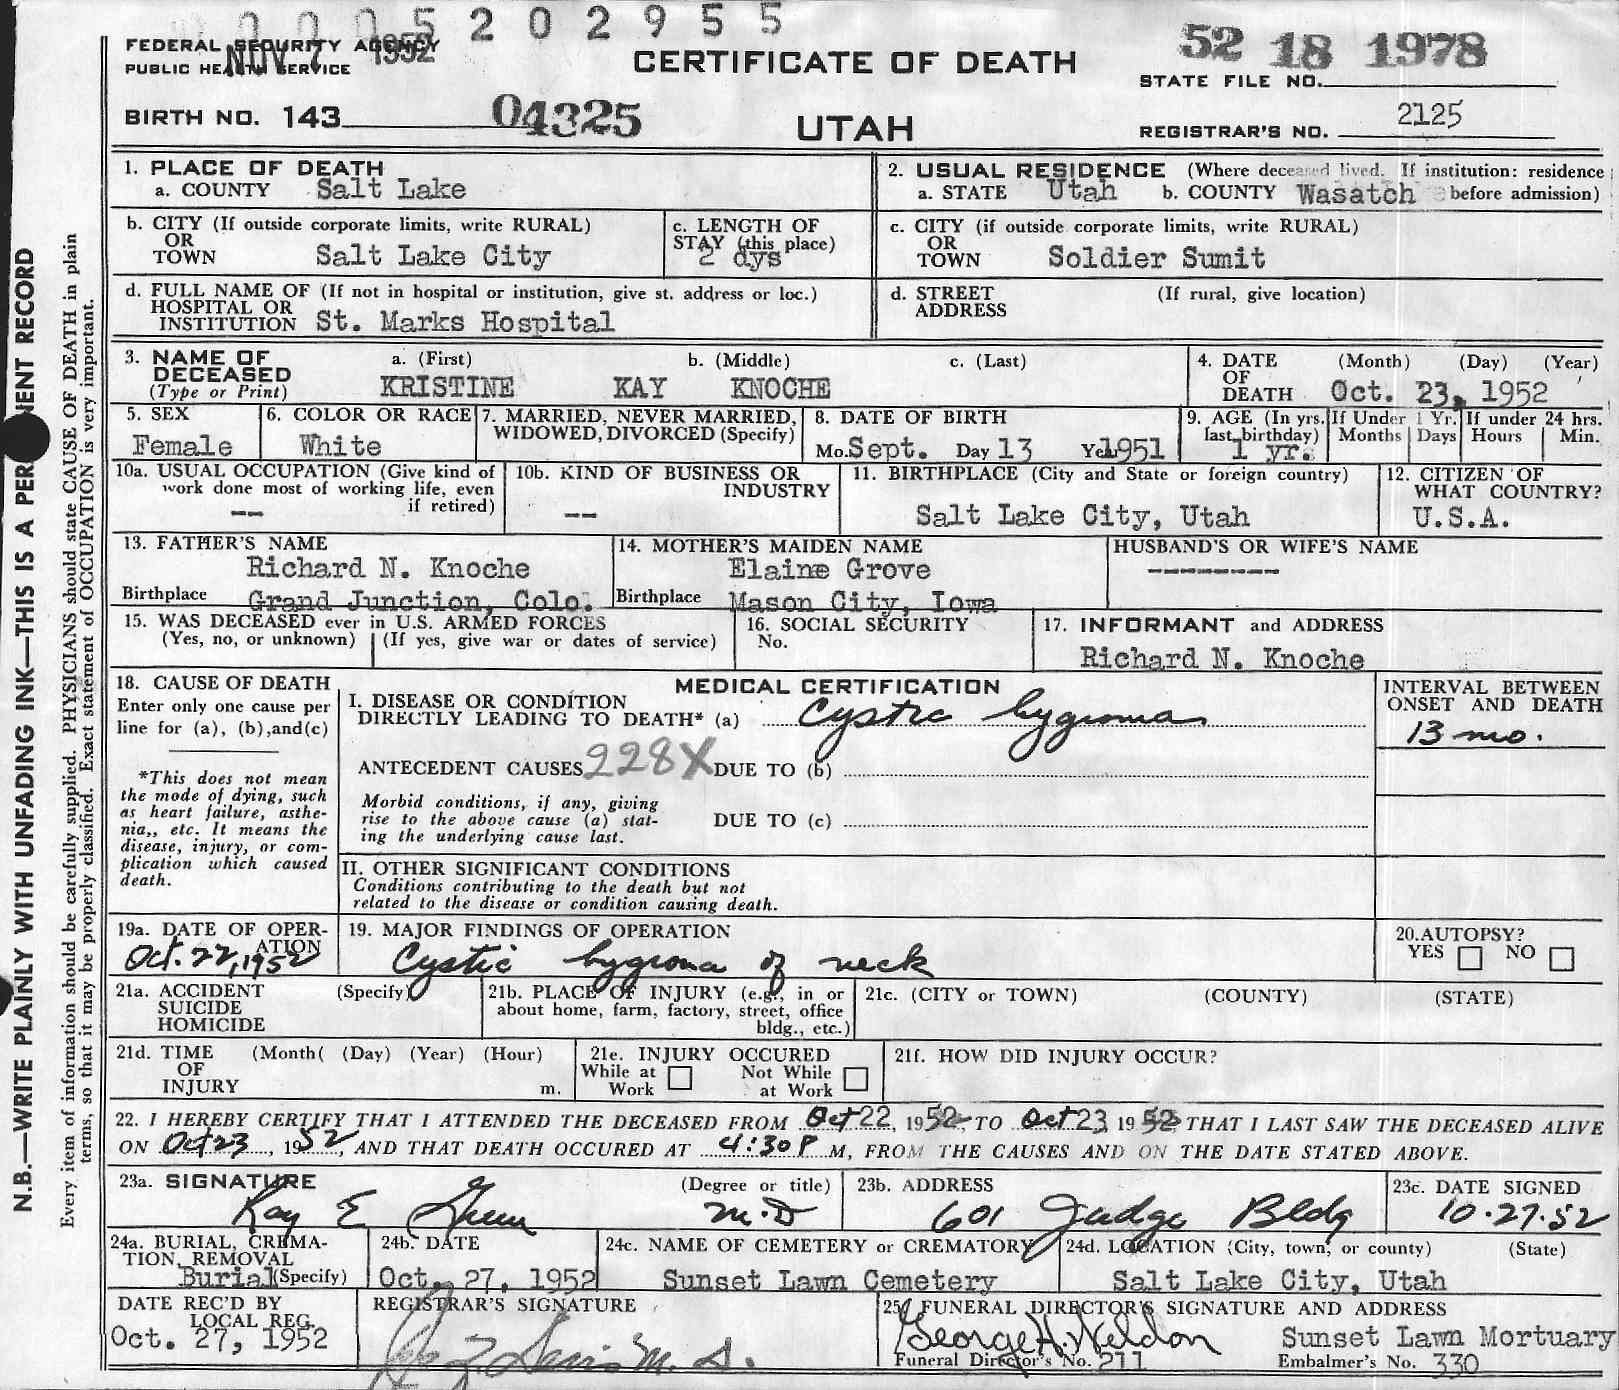 0 0 0 5 2 0 2 9 5 5
FEDERAL SECURITY AGENCY
PUBLIC HEALTH SERVICE
NOV 7 1952
CERTIFICATE OF DEATH
52 18 1978
STATE FILE NO.
BIRTH NO. 143 04325
UTAH
REGISTRAR'S NO. 2125
1. PLACE OF DEATH
a. COUNTY Salt Lake
2. USUAL RESIDENCE (Where deceased lived. If institution: residence
a. STATE Utah b. COUNTY Wasatch before admission)
b. CITY (If outside corporate limits, write RURAL)
OR
TOWN Salt Lake City
c. LENGTH OF
STAY (this place)
2 dys
c. CITY (if outside corporate limits, write RURAL)
OR
TOWN Soldier Sumit
d. FULL NAME OF (If not in hospital or institution, give st. address or loc.)
HOSPITAL OR
INSTITUTION St. Marks Hospital
d. STREET (If rural, give location)
ADDRESS
3. NAME OF a. (First) b. (Middle) c. (Last)
DECEASED
(Type or Print) KRISTINE KAY KNOCHE
4. DATE (Month) (Day) (Year)
OF
DEATH Oct. 23, 1952
5. SEX
Female
6. COLOR OR RACE
White
7. MARRIED, NEVER MARRIED,
WIDOWED, DIVORCED (Specify)
8. DATE OF BIRTH
Mo. Sept. Day 13 Year 1951
9. AGE (In yrs.
last birthday)
1 yr.
If Under 1 Yr.
Months Days
If under 24 hrs.
Hours Min.
10a. USUAL OCCUPATION (Give kind of
work done most of working life, even
if retired)
--
10b. KIND OF BUSINESS OR
INDUSTRY
--
11. BIRTHPLACE (City and State or foreign country)
Salt Lake City, Utah
12. CITIZEN OF
WHAT COUNTRY?
U.S.A.
13. FATHER'S NAME
Richard N. Knoche
Birthplace Grand Junction, Colo.
14. MOTHER'S MAIDEN NAME
Elaine Grove
Birthplace Mason City, Iowa
HUSBAND'S OR WIFE'S NAME
---------
15. WAS DECEASED ever in U.S. ARMED FORCES
(Yes, no, or unknown) (If yes, give war or dates of service)
16. SOCIAL SECURITY
No.
17. INFORMANT and ADDRESS
Richard N. Knoche
18. CAUSE OF DEATH
Enter only one cause per
line for (a), (b),and(c)
*This does not mean
the mode of dying, such
as heart failure, asthe-
nia,, etc. It means the
disease, injury, or com-
plication which caused
death.
MEDICAL CERTIFICATION
I. DISEASE OR CONDITION
DIRECTLY LEADING TO DEATH* (a) Cystic hygroma
ANTECEDENT CAUSES 228X DUE TO (b)
Morbid conditions, if any, giving
rise to the above cause (a) stat-
ing the underlying cause last.
DUE TO (c)
INTERVAL BETWEEN
ONSET AND DEATH
13 mo.
II. OTHER SIGNIFICANT CONDITIONS
Conditions contributing to the death but not
related to the disease or condition causing death.
19a. DATE OF OPER-
ATION
Oct. 22, 1952
19. MAJOR FINDINGS OF OPERATION
Cystic hygroma of neck
20.AUTOPSY?
YES NO
21a. ACCIDENT (Specify)
SUICIDE
HOMICIDE
21b. PLACE OF INJURY (e.g., in or
about home, farm, factory, street, office
bldg., etc.)
21c. (CITY or TOWN) (COUNTY) (STATE)
21d. TIME (Month( (Day) (Year) (Hour)
OF
INJURY m.
21e. INJURY OCCURED
While at Not While
Work at Work
21f. HOW DID INJURY OCCUR?
22. I HEREBY CERTIFY THAT I ATTENDED THE DECEASED FROM Oct 22, 1952, TO Oct 23, 1952, THAT I LAST SAW THE DECEASED ALIVE
ON Oct 23, 1952, AND THAT DEATH OCCURED AT 4:30 P M, FROM THE CAUSES AND ON THE DATE STATED ABOVE.
23a. SIGNATURE (Degree or title)
Kay E M.D
23b. ADDRESS
601 Judge Bldg
23c. DATE SIGNED
10-27-52
24a. BURIAL, CREMA-
TION, REMOVAL
Burial (Specify)
24b. DATE
Oct. 27, 1952
24c. NAME OF CEMETERY or CREMATORY
Sunset Lawn Cemetery
24d. LOCATION (City, town, or county) (State)
Salt Lake City, Utah
DATE REC'D BY
LOCAL REG.
Oct. 27, 1952
REGISTRAR'S SIGNATURE
M. D.
25. FUNERAL DIRECTOR'S SIGNATURE AND ADDRESS
George H. Weldon Sunset Lawn Mortuary
Funeral Director's No. 211 Embalmer's No. 330
N.B.—WRITE PLAINLY WITH UNFADING INK—THIS IS A PERMANENT RECORD
Every item of information should be carefully supplied. PHYSICIANS should state CAUSE OF DEATH in plain
terms, so that it may be properly classified. Exact statement of OCCUPATION is very important.